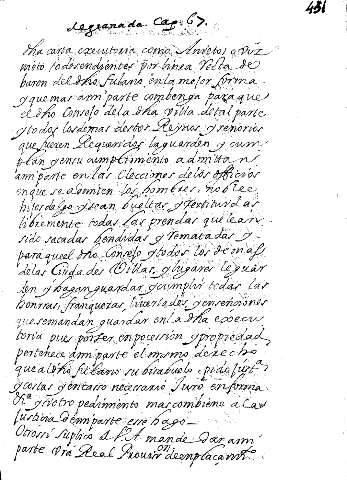 431
de granada Cap. 67.
dha carta executoria como Anietos o viz
nietos o descendientes por linea recta de
baron del dho fulano en la mejor forma
y que mas a mi parte combenga para que
el dho Consejo de la dha villa de tal parte
y todos los demas destos Reynos y señorios
que fueren Requeridos la guarden y cum
plan y en su cumplimiento admitan a
mi parte en las elecciones de los officios
en que se admiten los hombres nobles
hijosdalgo y sean bueltas y restituidas
libremente todas las prendas que le an
sido sacadas bendidas y rematadas y
para que el dho Consejo y todos los demas
de las Ciudades Villas, y lugares le guar
den y hagan guardar y cumplir todas las
honrras, franquezas, livertades, y exsenciones
que se mandan guardar en la dha execu
toria pues por ser en posession y propiedad
pertenece a mi parte el mismo derecho
que a dho fulano su bisabuelo, pido justª
y costas y en caso necesario Juro en forma
y otro pedimiento mas combiene a la
justicia de mi parte ese hago
Otrossi suplico a V.A. mande dar a mi
parte Vra Real Provision de emplaçamto